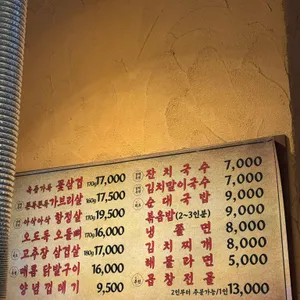 육즙가득 꽃삼겹 170g 17,000
쫀득쫀득 가브리살 160g 17,500
아삭아삭 항정살 170g 19,500
오도독 오돌뼈 170g 16,000
고추장 삼겹살 180g 17,000
매콤 닭발구이 16,000
양념 껍데기 9,500
잔치국수 7,000
김치말이국수 7,000
순대국밥 9,000
볶음밥(2~3인분) 9,000
냉쫄면 8,000
김치찌개 8,000
해물라면 5,000
곱창전골
2인부터 주문가능/1인 13,000